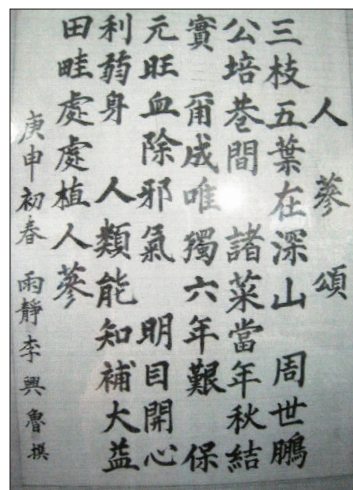 人蔘頌
三枝五葉在深山 周世鵬
公培巷間 諸菜當年秋結
實 爾成唯獨六年艱 保
元旺血除邪氣 明目開心
利弱身 人類能知補大益
田畦處處植人蔘
庚申初春 雨靜 李興魯 撰